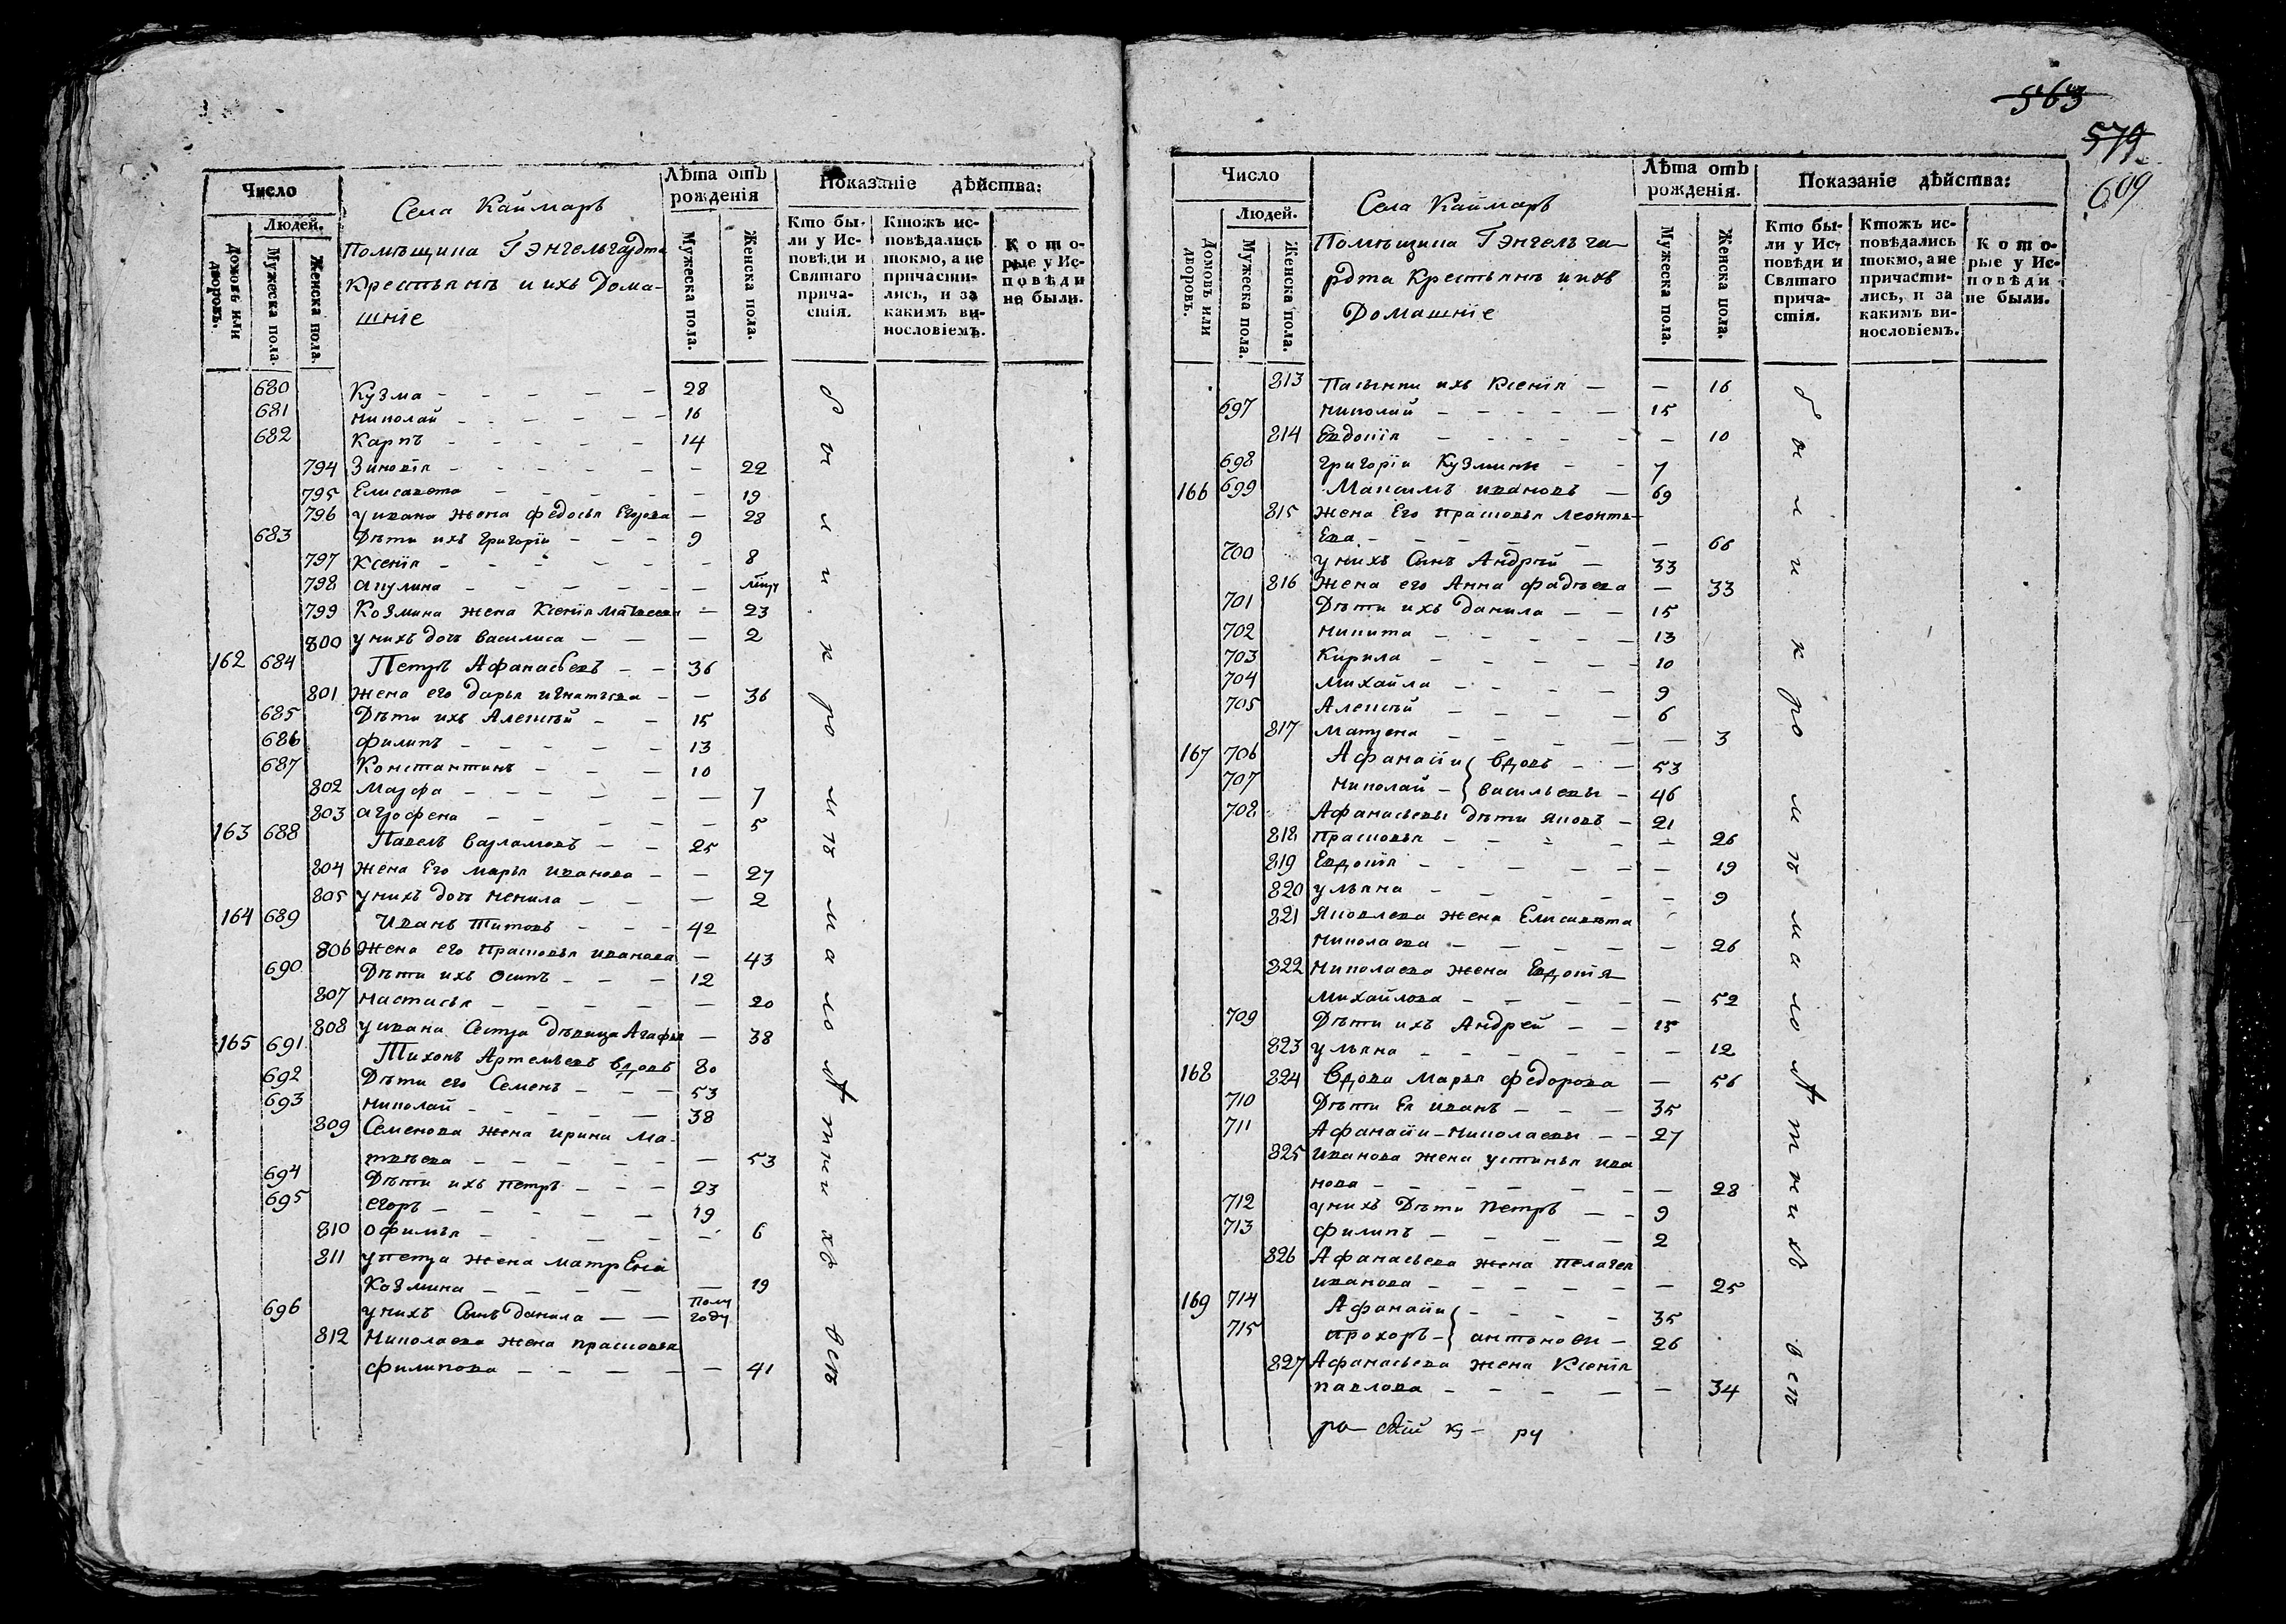 Число
Села Каймаръ
Лѣта отъ рожденія
Показаніе дѣйства:
Домовъ или дворовъ.
Людей.
Мужеска пола.
Женска пола.
Помѣщика Г Энгельгардта
Крестьянъ и ихъ Дома-
шніе
Мужеска пола.
Женска пола.
Кто бы-
ли у Ис-
повѣди и
Святаго
прича-
стія.
Ктожъ ис-
повѣдались
токмо, а не
причасти-
лись, и за
какимъ ви-
нословіемъ.
Кото-
рые у Ис-
повѣди
не были.
680 Кузма - - - - - 28
681 николай - - - - - 16
682 Карпъ - - - - - 14
794 Зиновія - - - - - - 22
795 Елисавета - - - - - 19
796 у ивана жена федосья Егорова - 28
683 Дѣти ихъ григоріи - - - 9
797 Ксенія - - - - - - 8
798 акулина - - - - - -
799 Козмина жена Ксенія матвеева - 23
800 у нихъ дочь василиса - - - 2
162 684 Петръ Афанасьевъ - - 36
801 жена его дарья игнатьева - - 36
685 Дѣти ихъ Алексѣй - - 15
686 филипъ - - - - - 13
687 Константинъ - - - 10
802 Марфа - - - - - - 7
803 агрофена - - - - - 5
163 688 Павелъ варламовъ - - 25
804 жена Его марья иванова - - 27
805 у нихъ дочь ненила - - - 2
164 689 Иванъ Титовъ - - - 42
806 жена его прасковья иванова - 43
690 Дѣти ихъ осипъ - - - 12
807 настасья - - - - - - 20
808 у ивана Сестра дѣвица Агафья - 38
165 691 Тихонъ Артемьевъ вдовъ 80
692 Дѣти его Семенъ - - - 53
693 николай - - - - - 38
809 Семенова жена ирина Ма-
твѣева - - - - - - 53
694 Дѣти ихъ петръ - - - 23
695 егоръ - - - - - 19
810 офимья - - - - - - 6
811 у петра жена матрена
Козмина - - - - - 19
696 у нихъ Сынъ данила - - Полу году
812 Николаева жена прасковья
филипова - - - - - 41
были кромѣ малолѣтнихъ всѣ
563
574
609
Число
Села Каймаръ
Лѣта отъ рожденія.
Показаніе дѣйства:
Домовъ или дворовъ.
Людей.
Мужеска пола.
Женска пола.
Помѣщика Г Энгельга-
рдта Крестьянъ и ихъ
Домашніе
Мужеска пола.
Женска пола.
Кто бы-
ли у Ис-
повѣди и
Святаго
прича-
стія.
Ктожъ ис-
повѣдались
токмо, а не
причасти-
лись, и за
какимъ ви-
нословіемъ.
Кото-
рые у Ис-
повѣди
не были.
813 Пасынки ихъ Ксенія - - 16
697 николай - - - - - 15
814 Евдокія - - - - - - 10
698 григоріи Кузмины - - 7
166 699 Максимъ ивановъ - 69
815 жена Его прасковья леонть-
Ева - - - - - - 66
700 у нихъ Сынъ Андрѣй - 33
816 жена его Анна фадѣева - 33
701 Дѣти ихъ данила - - 15
702 никита - - - - - 13
703 Кирила - - - - - 10
704 михайла - - - - 9
705 Алексѣй - - - - 6
817 матрена - - - - - - 3
167 706 Афанасіи вдовъ - - 53
707 николай - васильевы - 46
708 Афанасьевы дѣти яковъ - 21
818 прасковья - - - - - - 26
819 Евдокія - - - - - - 19
820 ульяна - - - - - - 9
821 яковлева жена Елисавета
николаева - - - - - 26
822 николаева жена Евдокія
михайлова - - - - - 52
709 Дѣти ихъ Андрей - - 15
823 ульяна - - - - - - 12
168 824 Вдова марья федорова - 56
710 Дѣти Ея иванъ - - - 35
711 Афанасіи - николаевы - - 27
825 иванова жена устинья ива
нова - - - - - - - 28
712 у нихъ Дѣти петръ - - 9
713 филипъ - - - - 2
826 Афанасьева жена пелагея
иванова - - - - - - 25
169 714 Афанасіи - - - - 35
715 прохоръ - антоновы - 26
827 Афанасьева жена Ксенія
павлова - - - - - 34
были кромѣ малолѣтнихъ всѣ